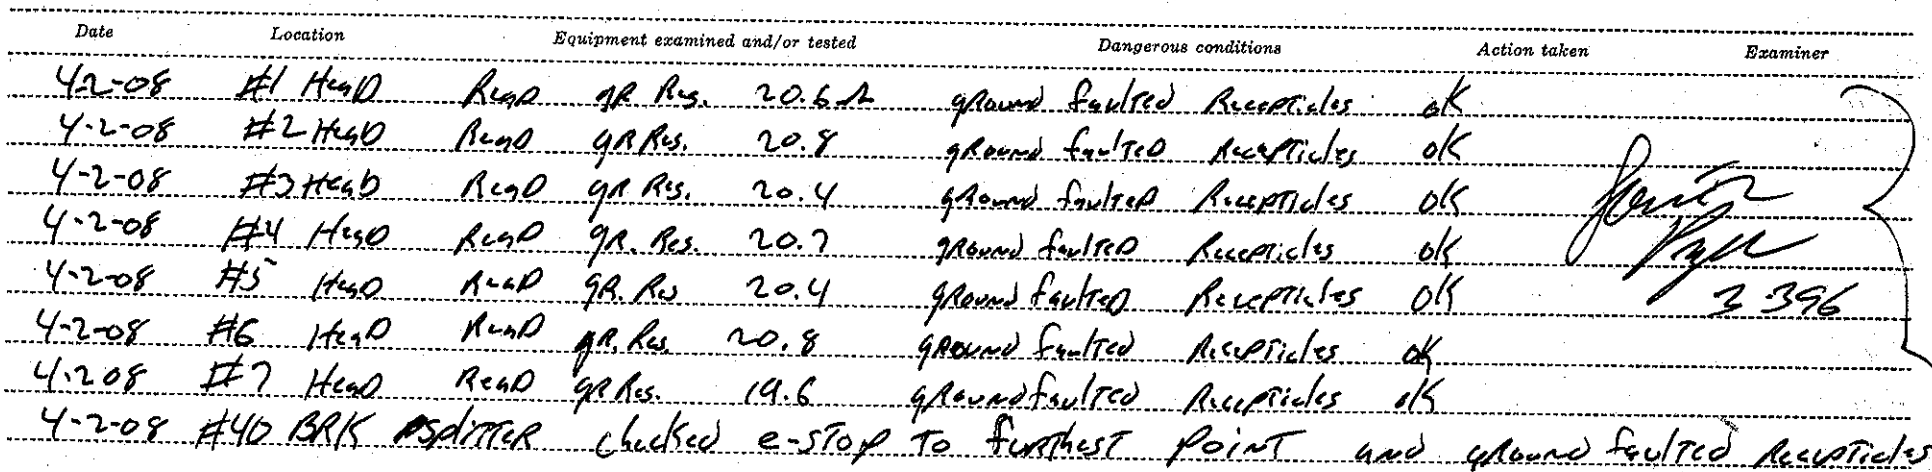 Date Location Equipment examined and/or tested Dangerous conditions Action taken Examiner
4-2-08 #1 HeaD ReaD gR Res. 20.6 Ω gRound faulted Recepticles ok
4-2-08 #2 HeaD ReaD gR Res. 20.8 gRound faulTeD RecepTicles ok
4-2-08 #3 HeaD ReaD gR Res. 20.4 gRound faulteD RecepTicles ok
4-2-08 #4 HeaD ReaD gR. Res. 20.7 gRound faulteD Recepticles ok
4-2-08 #5 HeaD ReaD gR. Res 20.4 gRound faulTeD Recepticles ok
3-396
4-2-08 #6 HeaD ReaD gR. Res. 20.8 gRound faulted RecepTicles ok
4-2-08 #7 HeaD ReaD gR Res. 19.6 gRound faulted Recepticles ok
4-2-08 #40 BRK spliTTeR checked e-sTop To furthesT poinT and gRound faulTed RecepTicles